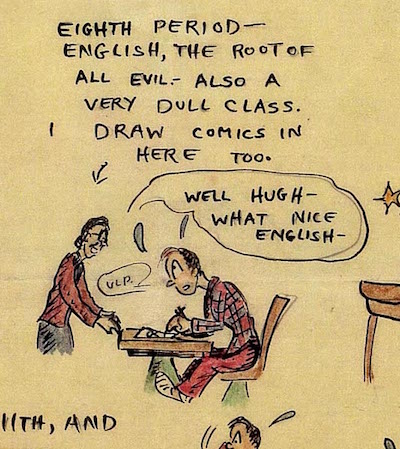 EIGHTH PERIOD—
ENGLISH, THE ROOT OF
ALL EVIL.- ALSO A
VERY DULL CLASS.
I DRAW COMICS IN
HERE TOO.
WELL HUGH—
WHAT NICE
ENGLISH—
ULP.
IITH, AND